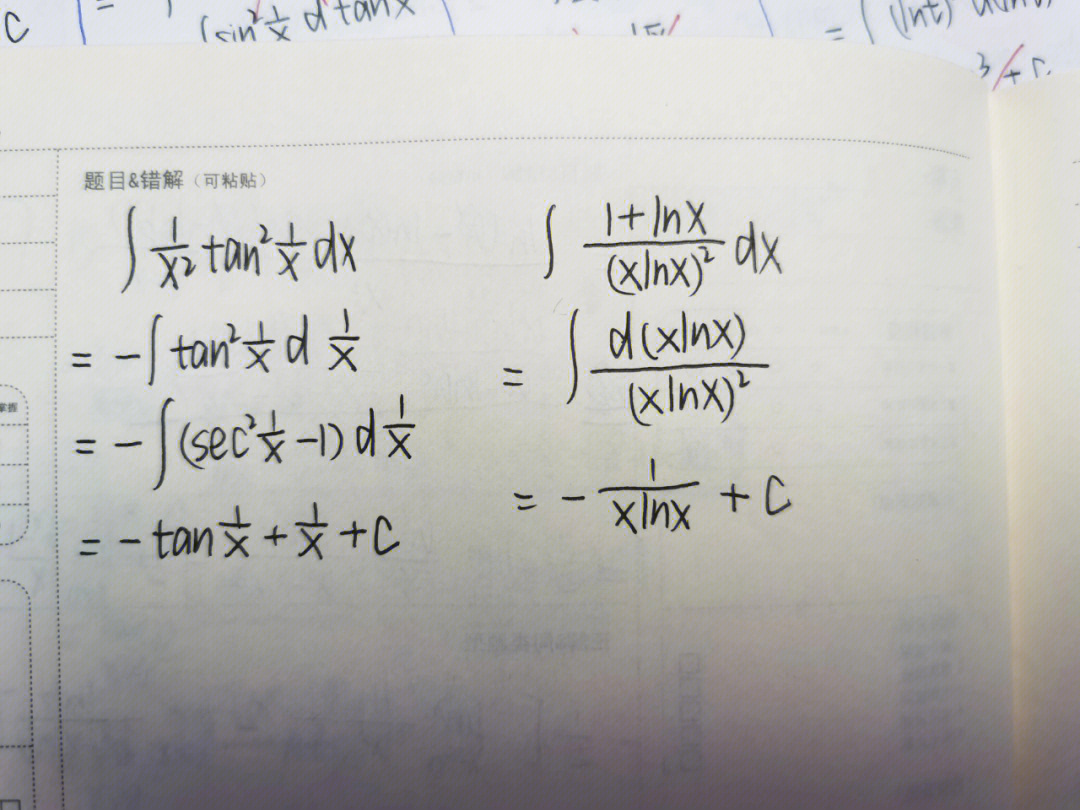 C
=
∫sin²1/x d tanx
= ∫(lnt)²
3 + C
题目&错解（可粘贴）
∫ 1/x² tan² 1/x dx
= -∫ tan² 1/x d 1/x
= -∫ (sec² 1/x -1) d 1/x
= - tan 1/x + 1/x + C
∫ (1+lnx)/(xlnx)² dx
= ∫ d(xlnx)/(xlnx)²
= - 1/(xlnx) + C
掌握